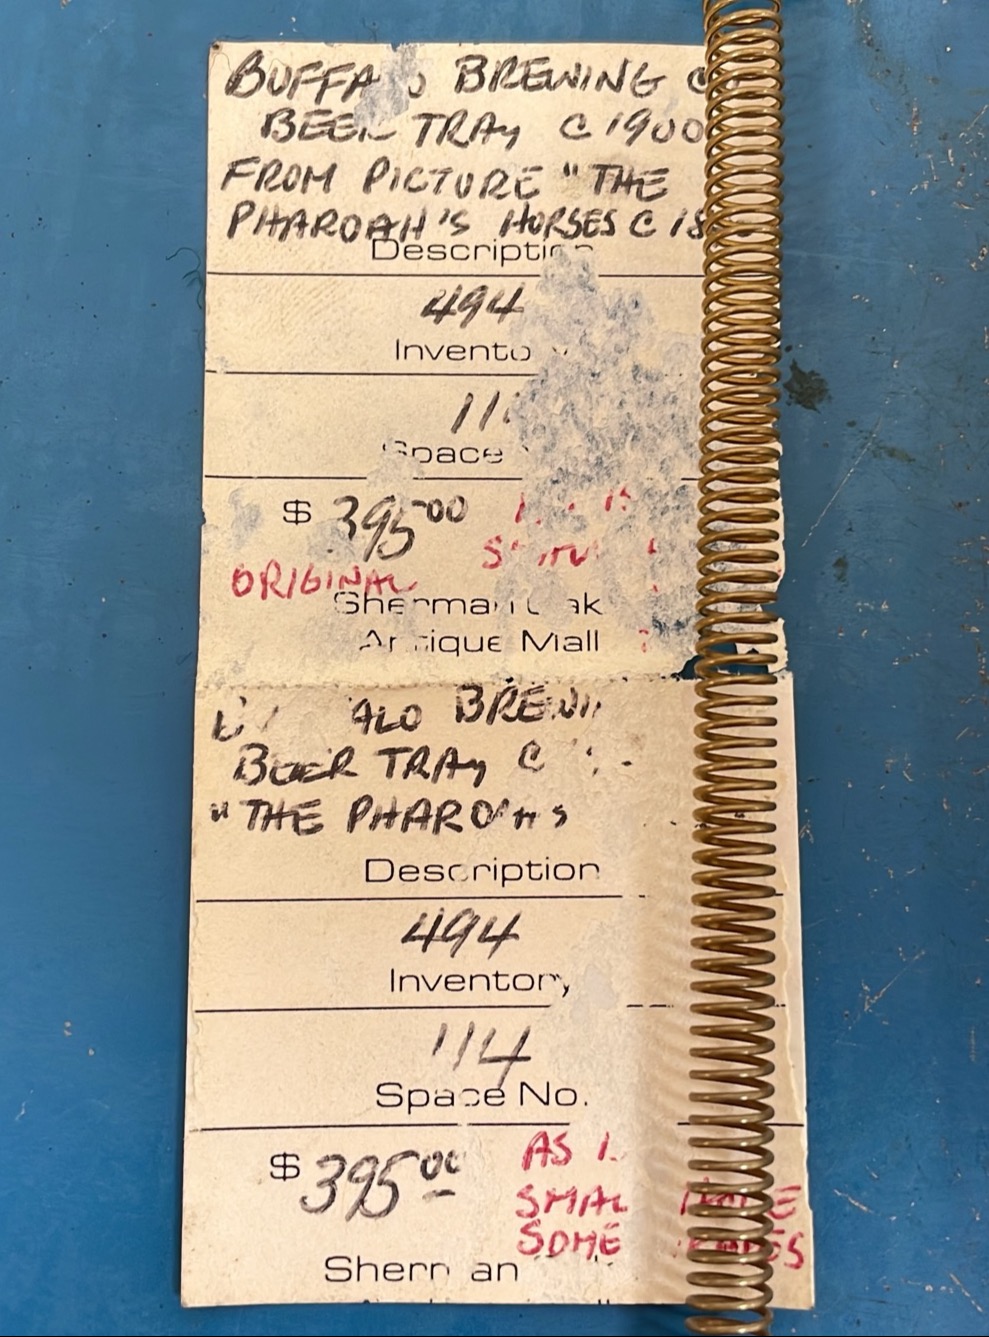 BUFFALO BREWING
BEER TRAY C 1900
FROM PICTURE "THE
PHAROAH'S HORSES C
Description
494
Inventory
Space
$ 395.00
ORIGINAL
Sherman Oak
Antique Mall
BREWIN
BEER TRAY C
"THE PHAROAHS
Description
494
Inventory
114
Space No.
$ 395.00
AS
SMAL
SOME
Sherman